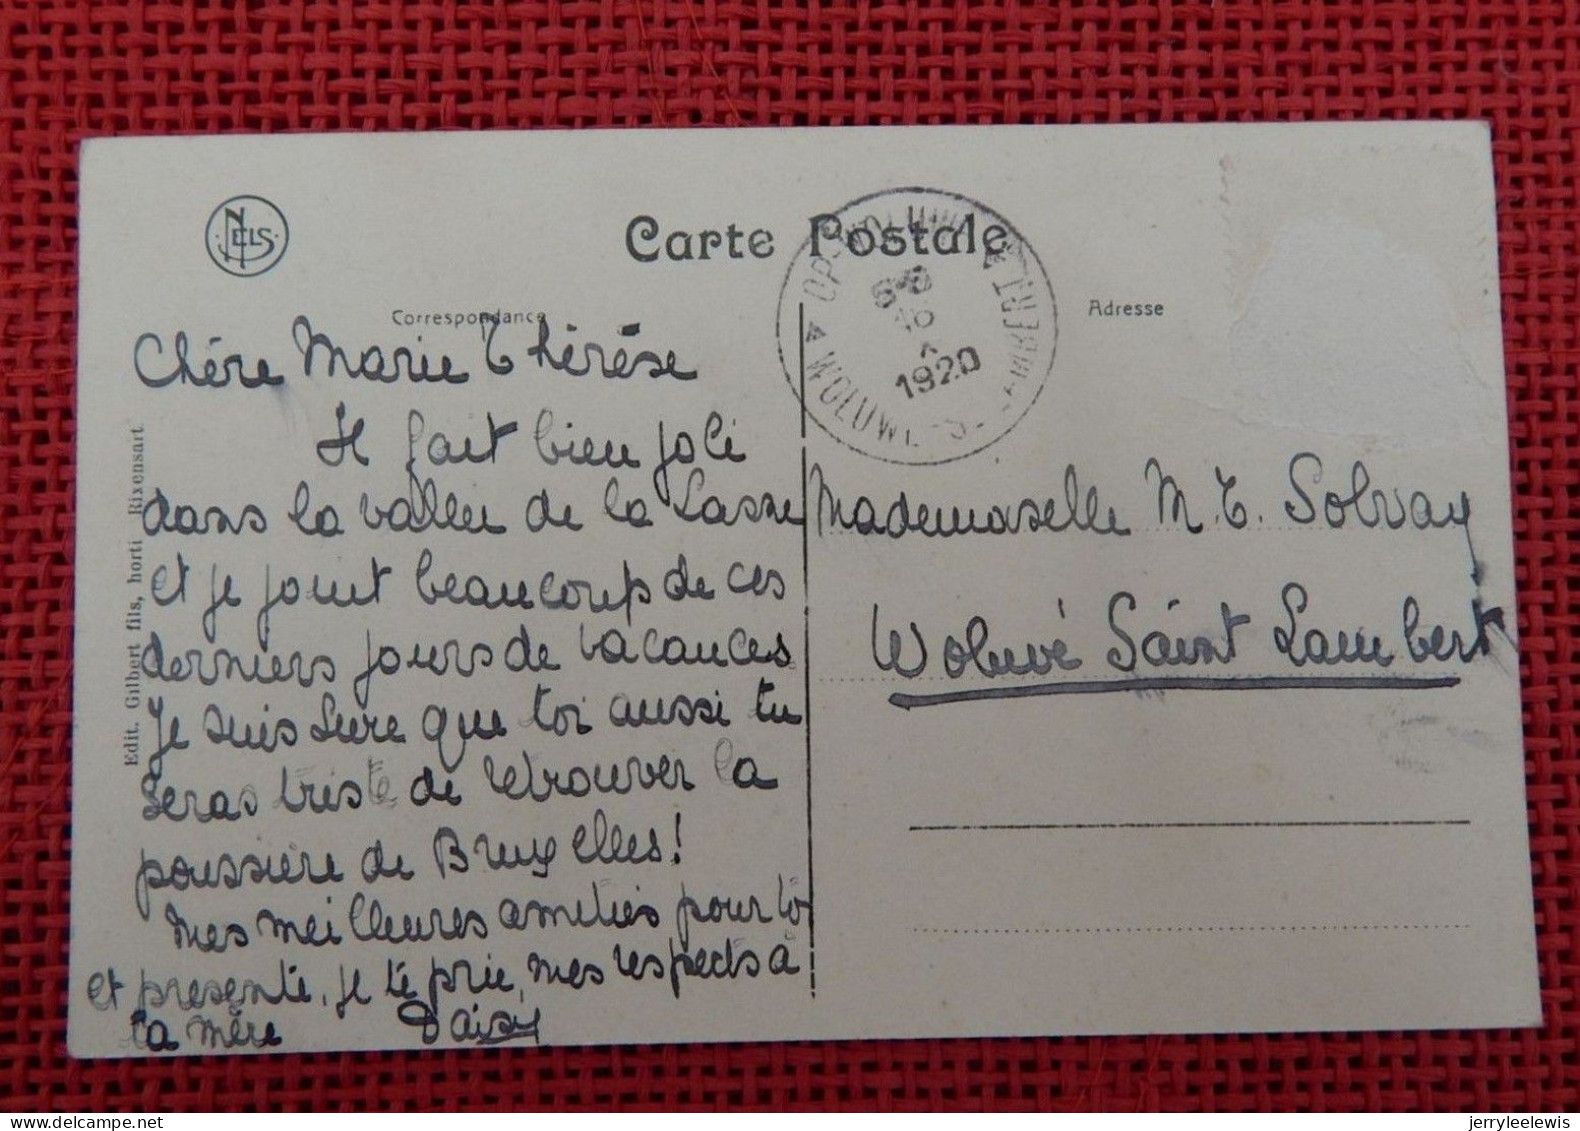 NELS
Carte Postale
Correspondance
Adresse
1920
Edit. Gilbert fils, horti Rixensart
Chère Marie Thérèse
Il fait bien joli
dans la vallee de la Lasne
et je jouit beaucoup de ces
derniers jours de vacances
Je suis sure que toi aussi tu
seras triste de retrouver la
poussière de Bruxelles!
Mes meilleures amitiés pour toi
et presente, je te prie, mes respects à
ta mère Daisy
Mademoselle M. T. Solvay
Woluvé Saint Lambert
jerryleelewis